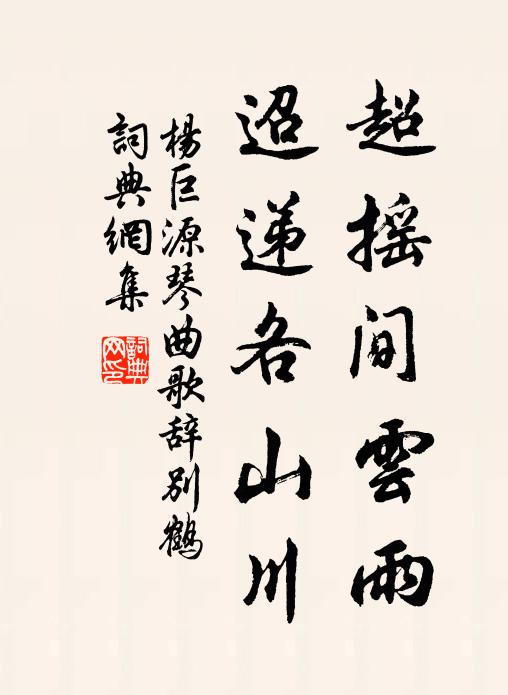 超摇间雲雨
迢递各山川
楊巨源琴曲歌辞别鶴
詞典網集
詞典网印